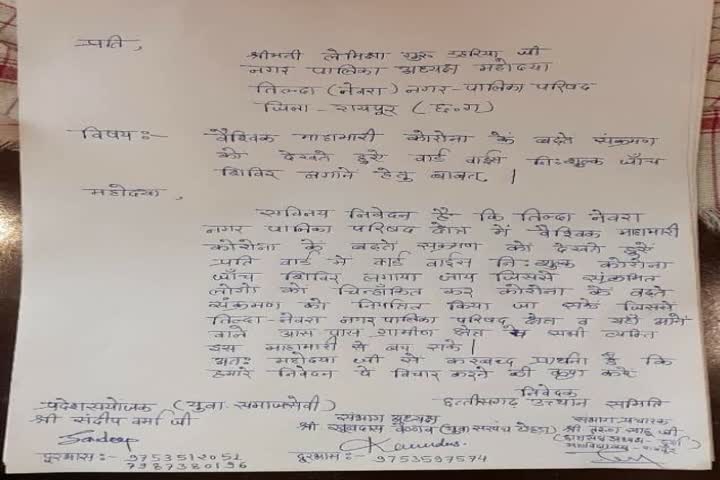 प्रति,
श्रीमती लेमिक्षा गुरु डहरिया जी
नगर पालिका अध्यक्ष महोदया
तिल्दा (नेवरा) नगर-पालिका परिषद
जिला - रायपुर (छ.ग)
विषय:- वैश्विक माहामारी कोरोना के बढ़ते संक्रमण
को देखते हुए वार्ड वाईस नि:शुल्क जाँच
शिविर लगाने हेतु बाबत् |
महोदया,
सविनय निवेदन है कि तिल्दा नेवरा
नगर पालिका परिषद क्षेत्र में वैश्विक माहामारी
कोरोना के बढ़ते संक्रमण को देखते हुए
प्रति वार्ड में वार्ड वाईस नि:शुल्क कोरोना
जाँच शिविर लगाया जाय जिससे संक्रमित
लोगो को चिन्हांकित कर कोरोना के बढ़ते
संक्रमण को नियंत्रित किया जा सके जिससे
तिल्दा-नेवरा नगर पालिका परिषद क्षेत्र व यहाँ आने
वाले आस पास ग्रामीण क्षेत्र के सभी व्यक्ति
इस माहामारी से बच सके |
अतः महोदया जी से करबध्द प्रार्थना है कि
हमारे निवेदन पे विचार करने की कृपा करें
निवेदक
छत्तीसगढ़ उत्थान समिति
प्रदेश संयोजक (युवा समाजसेवी)
श्री संदीप वर्मा जी
Sandeep
दूरभाष:- 9753512051
7987380196
संभाग अध्यक्ष
श्री खुबदास वैष्णव (युवा सरपंच
दूरभाष:- 9753597574
संभाग प्रचारक
श्री साहू जी